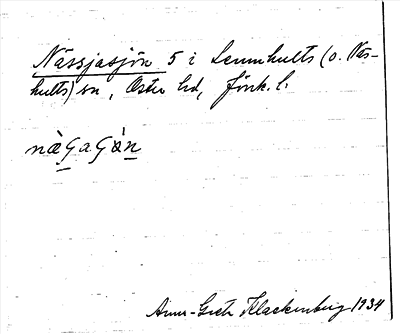 Nässjasjön 5 i Lemnhults (o. Näs-
hults) sn, Östra hd, Jönk. l.
næ̀GaGȧ̀n
Anna-Greta Klackenberg 1934